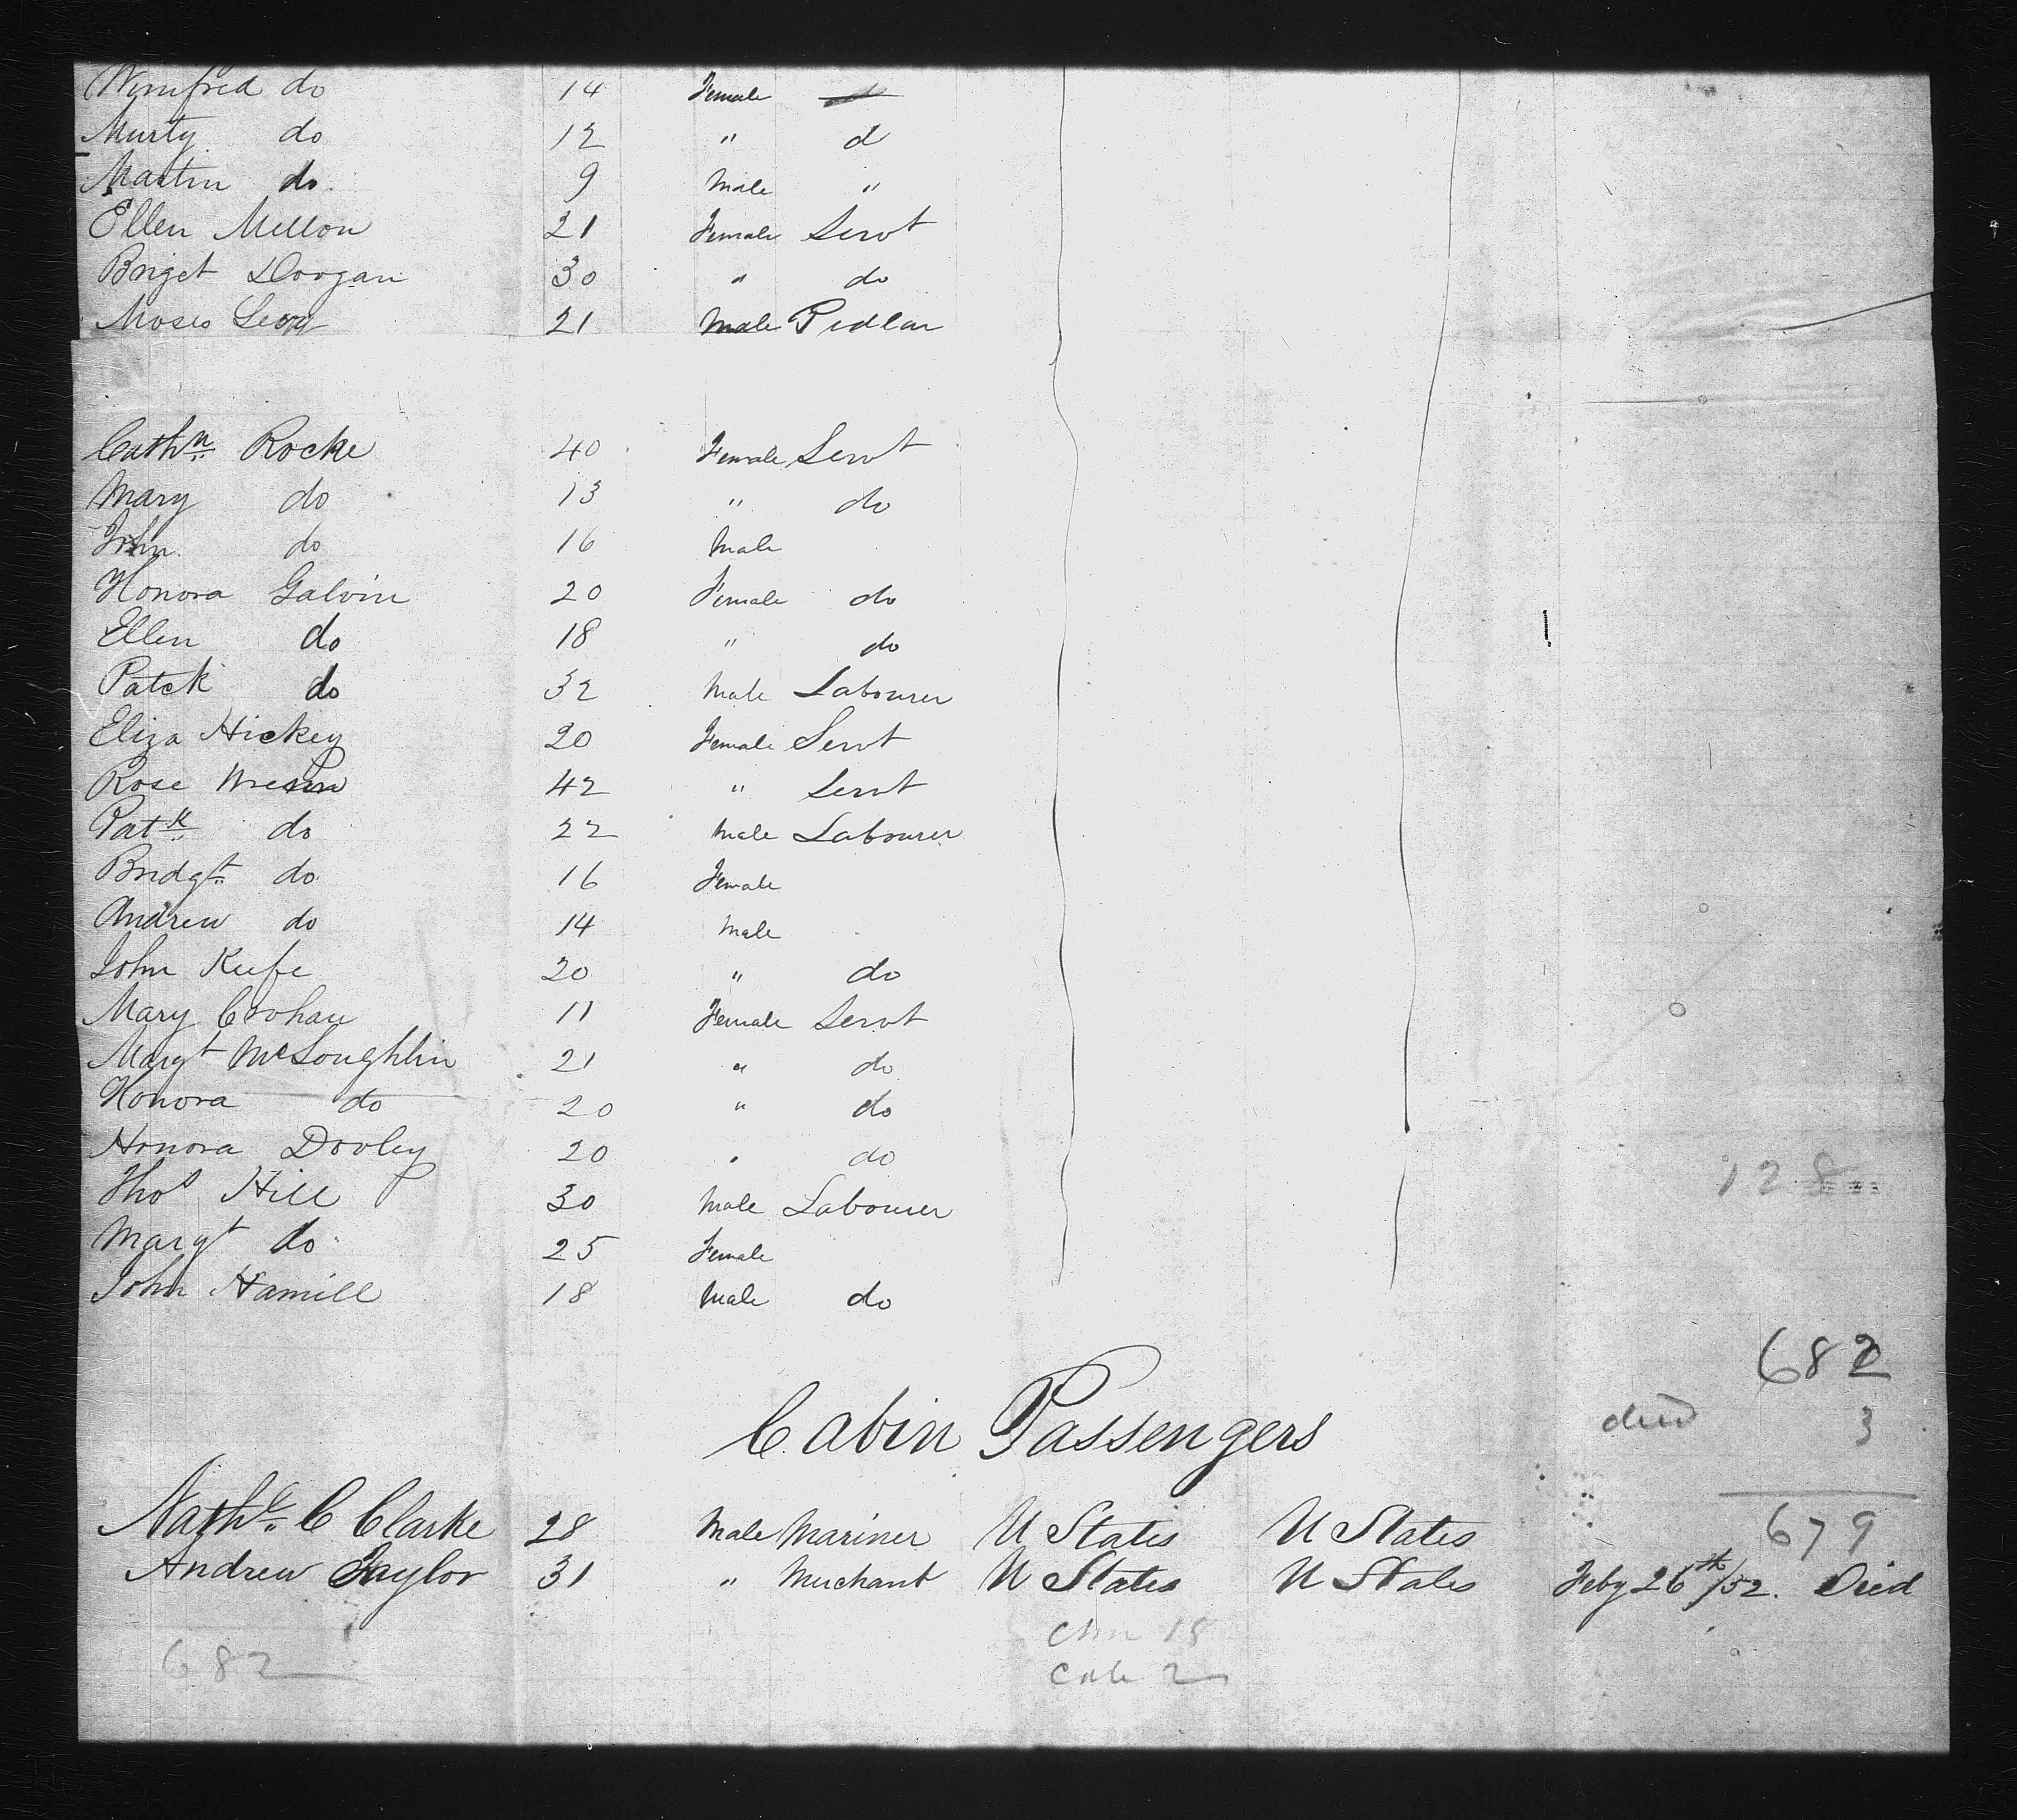 Winifred do 14 Female do
Murty do 12 " d
Martin do 9 Male "
Ellen Mellon 21 Female Servt
Briget Doogan 30 " do
Moses 21 Male Pedlar
Cathn Rocke 40 Female Servt
Mary do 13 " do
John do 16 Male
Honora Galvin 20 Female do
Ellen do 18 " do
Patck do 32 Male Labourer
Eliza Hickey 20 Female Servt
Rose 42 " Servt
Patk do 22 Male Labourer
Bridgt do 16 Female
Andrew do 14 Male
John Kufe 20 " do
Mary Crohan 11 Female Servt
Margt McLoughlin 21 " do
Honora do 20 " do
Honora Dooley 20 " do
128
Thos Hill 30 Male Labourer
Margt do 25 Female
John Hamill 18 Male do
682
died 3
Cabin Passengers
679
Nathl C Clarke 28 Male Mariner U States U States
Andrew Taylor 31 " Merchant U States U States Feby 26th/52. Died
682
18
2